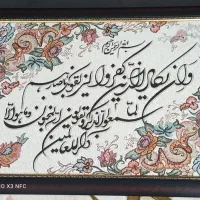 بسم الله الرحمن الرحیم
وان یکاد الذین کفروا لیزلقونک بابصارهم
لما سمعوا الذکر و یقولون انه لمجنون وما هو الا
ذکر للعالمین
O X3 NFC